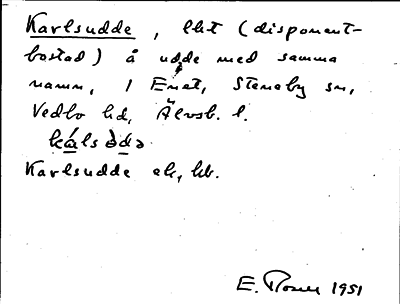 Karlsudde, lht (disponent-
bostad) å udde med samma
namn, i Ernet, Steneby sn,
Vedbo hd, Älvsb. l.
Karlsudde ek, hb.
E. 1951